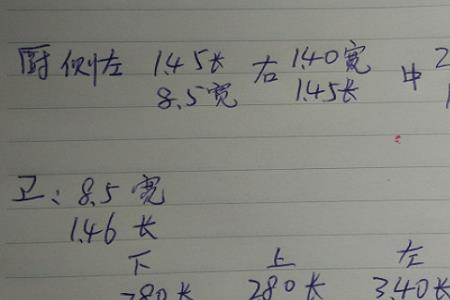 厨侧左 1.45长 右 1.40宽 中 2
8.5宽 1.45长
卫:8.5宽
1.46长
下 上 左
280长 280长 3.40长